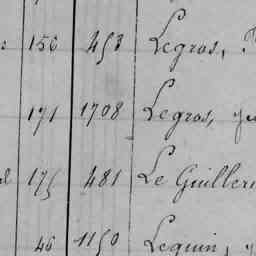 156 453 Legros,
171 1708 Legros,
175 481 Le Guillern
46 1150 Lequin,